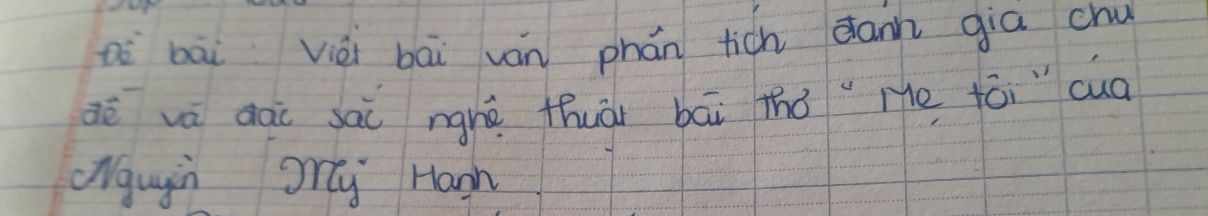 Đề bài: Viết bài văn phân tích đánh giá chủ
đề và đặc sắc nghệ thuật bài thơ "Mẹ tôi" của
Nguyễn Mỹ Hạnh.